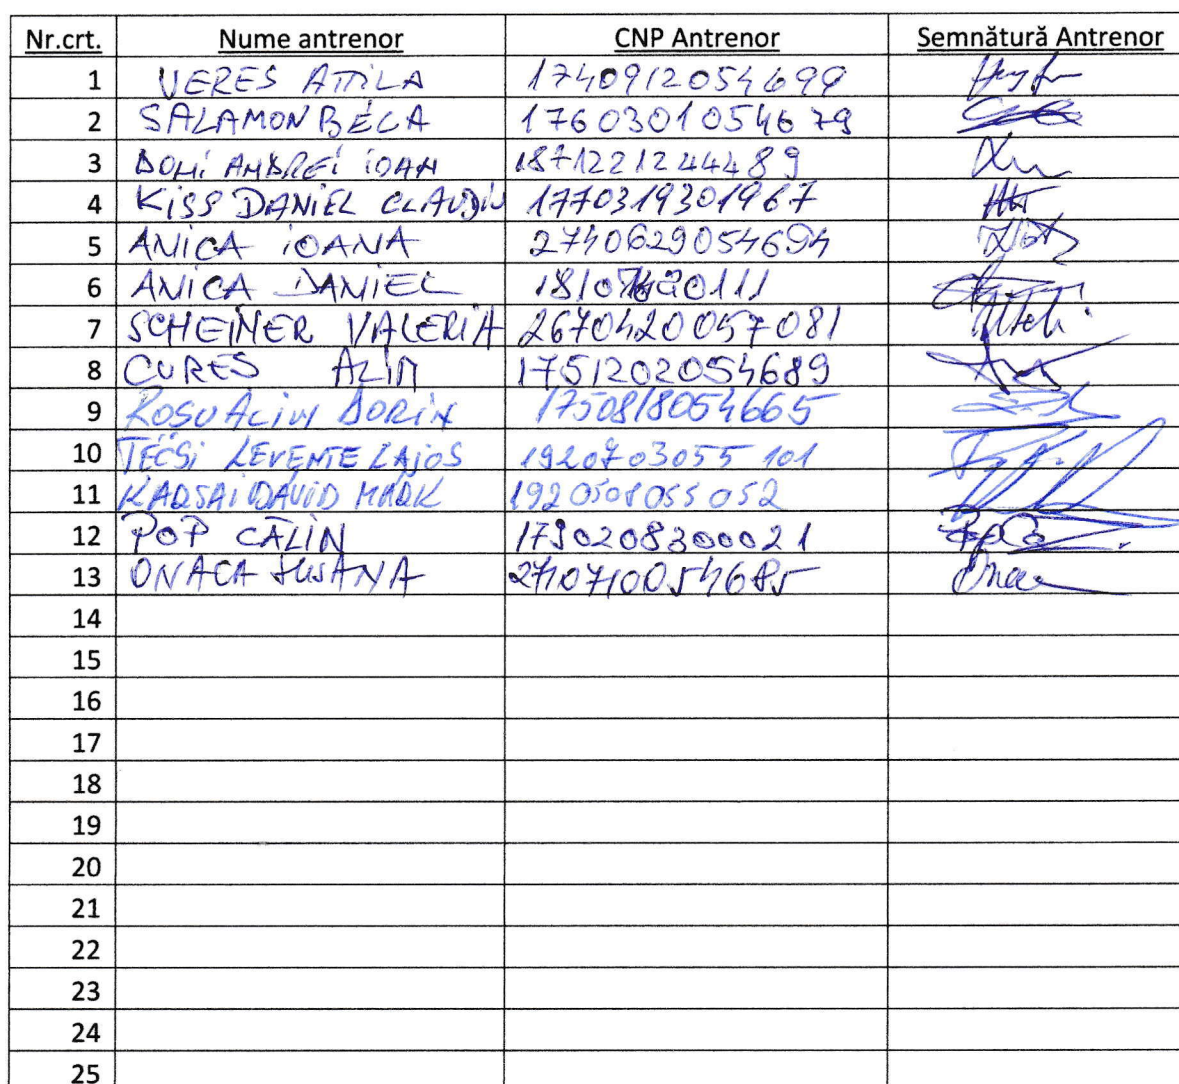 Nr.crt. Nume antrenor CNP Antrenor Semnătură Antrenor
1 VERES ATTILA 1740912054699
2 SALAMON BELA 1760301054679
3 ANDREI IOAN 1871221244489
4 KISS DANIEL CLAUDIU 1770319301967
5 ANICA IOANA 2740629054694
6 ANICA DANIEL
7 SCHEINER VALERIA 2670420057081
8 CURES ALIN 1751202054689
9 ROSU ALIN DORIN 1750818054665
10 TECSI LEVENTE LAJOS 1920703055101
11 KARSAI DAVID MARK
12 POP CĂLIN
13 ONACA SUSANA 2710710054685
14
15
16
17
18
19
20
21
22
23
24
25